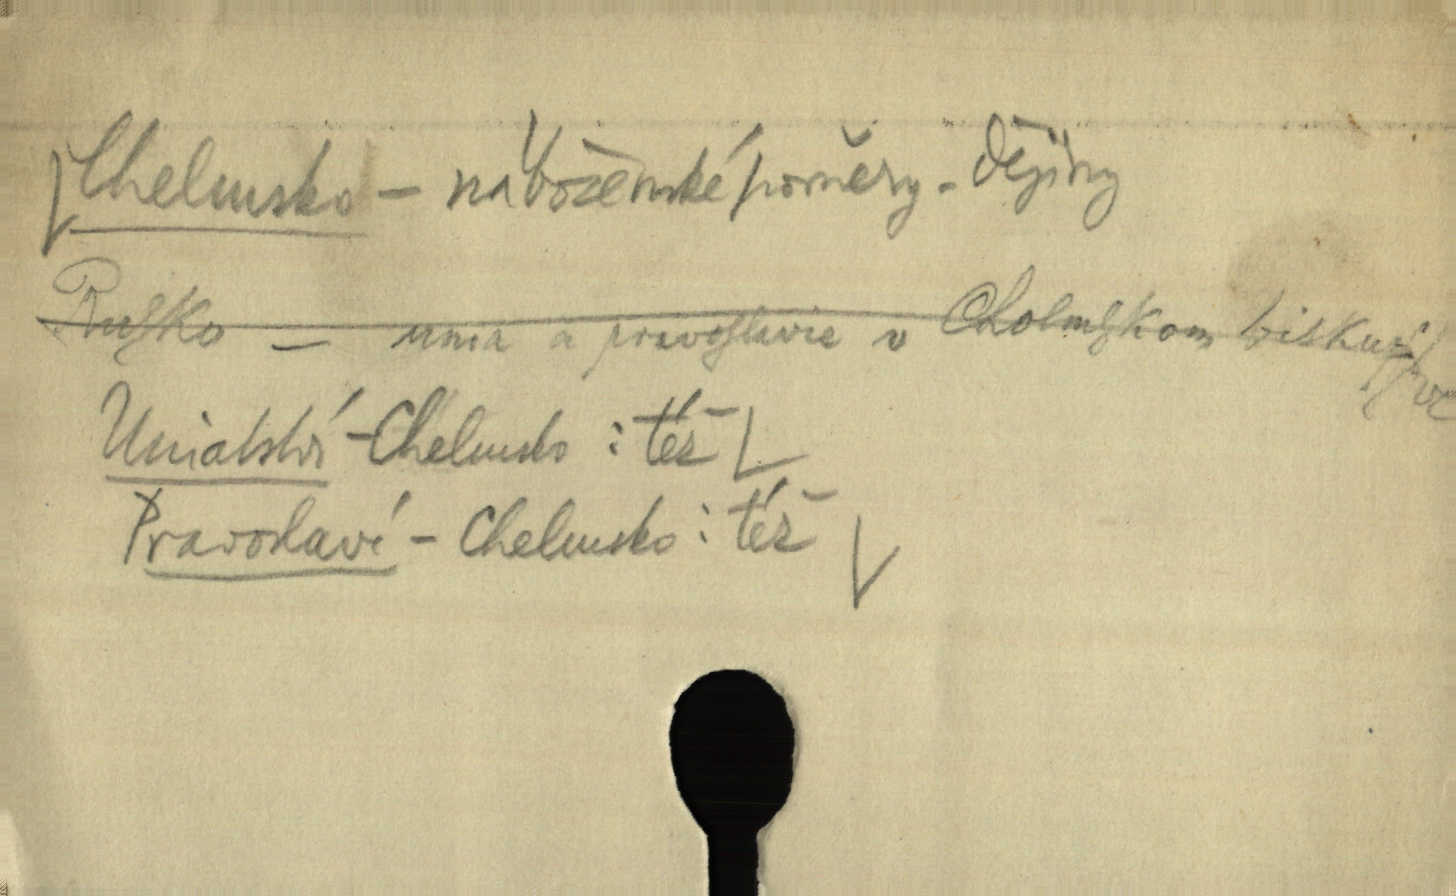 Chelmsko – náboženské poměry - dějiny
Rusko — unia a pravoslavie v Cholmskom biskupstve
Uniatství - Chelmsko : též
Pravoslaví - Chelmsko : též